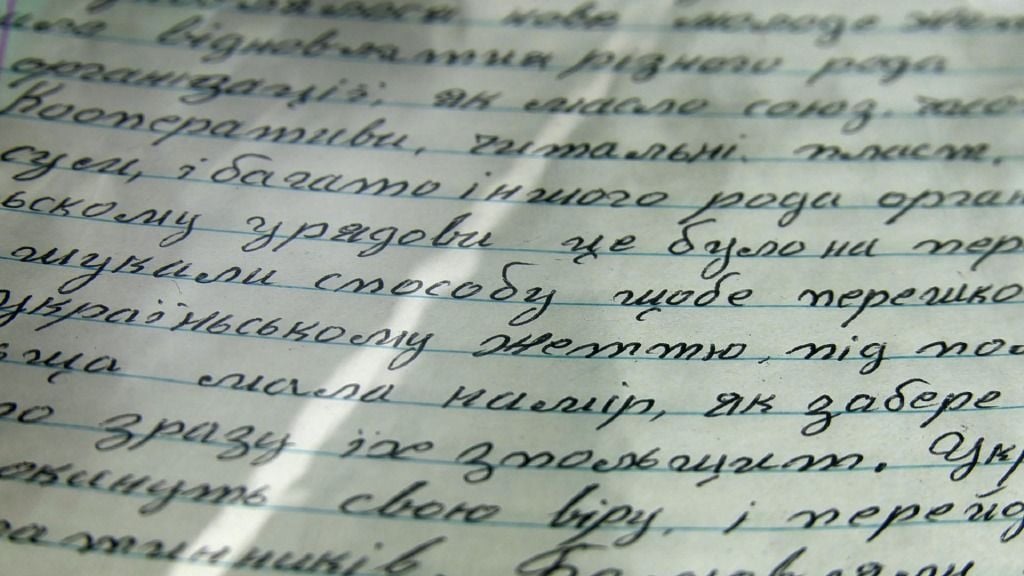 нове молоде
відновлятия різного рода
організації, як масло союз.
Кооперативи, читальні. пласт.
і багато іншого рода орган
ьскому урядови це було на пер
шукали способу щобе перешко
україньському жеттю, під по
ща мала намір, як забере
зразу їх зпольщит. Укр
окинуть свою віру, і перейд